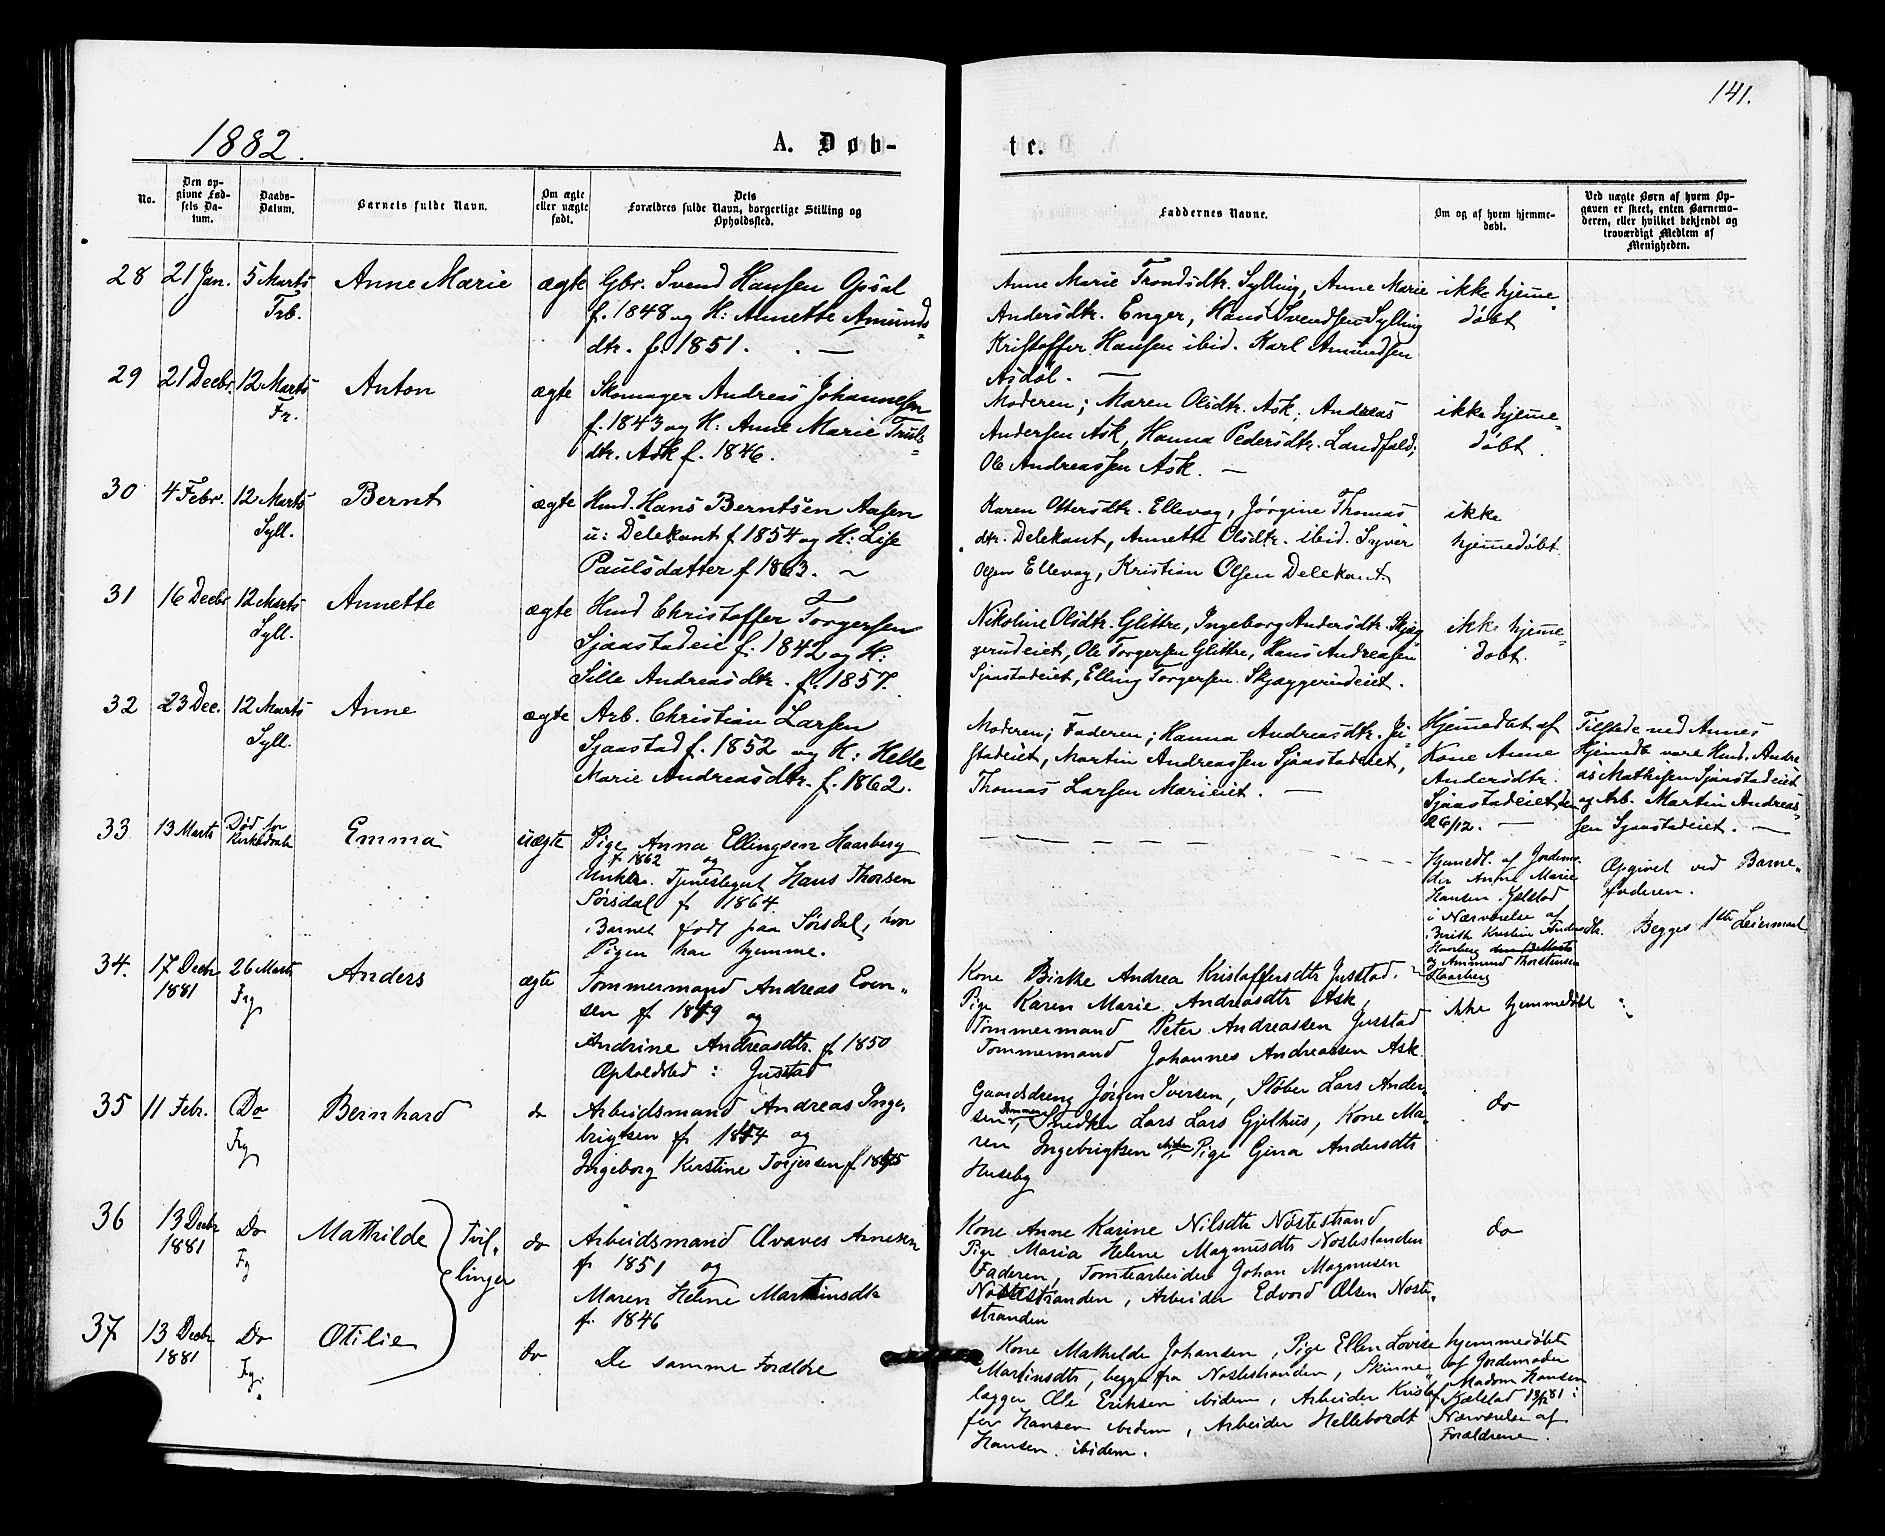 141.
1882.
A. Døb-
te.
No.
Den op-
givne Fød-
sels Da-
tum.
Daabs-
Datum.
Barnets fulde Navn.
Om ægte
eller uægte
født.
Dets
Forældres fulde Navn, borgerlige Stilling og
Opholdssted.
Faddernes Navne.
Om og af hvem hjemme-
døbt.
Ved uægte Børn af hvem Op-
gaven er skeet, enten Barnemo-
deren, eller hvilket bekjendt og
troværdigt Medlem af
Menigheden.
28
21 Jan.
5 Marts
Trb.
Anne Marie
ægte
Gbr. Svend Hansen Opsal
f. 1848 og H: Annette Amunds-
dtr. f. 1851. —
Anne Marie Trondsdtr. Sylling, Anne Marie
Andersdtr. Enger, Hans Svendsen Sylling
Kristoffer Hansen ibid. Karl Amundsen
Asdøl. —
ikke hjeme-
døbt
29
21 Decbr.
12 Marts
Fr.
Anton
ægte
Skomager Andreas Johannesen
f. 1843 og H. Anne Marie Truls-
dtr. Ask f. 1846.
Moderen; Maren Olsdtr. Ask; Andreas
Andersen Ask, Hanna Pedersdtr. Landfald;
Ole Andreassen Ask. —
ikke hjeme-
døbt.
30
4 Febr.
12 Marts
Syll.
Bernt
ægte
Hmd. Hans Berntsen Aasen
u: Delekant f. 1854 og H: Lise
Paulsdatter f 1863. ~
Karen Ottersdtr. Ellevog, Jørgine Thomas
dtr. Delekant, Annette Olsdtr. ibid. Syver
Olsen Ellevog, Kristian Olsen Delekant
ikke
hjemedøbt
31
16 Decbr
12 Marts
Syll.
Annette
ægte
Hmd Christoffer Torgersen
Sjaastadeie f. 1842 og H:
Sille Andreasdtr. f. 1857.
Nikoline Olsdtr. Glittre, Ingeborg Andersdtr. Skjæg
gerudeiet, Ole Torgersen Glittre, Hans Andreasen
Sjaastadeiet, Elling Torgersen Skjæggerudeiet.
ikke hjeme-
døbt.
32
23 Dec.
12 Marts
Syll.
Anne
ægte
Arb. Christian Larsen
Sjaastad f. 1852 og H: Helle
Marie Andreasdtr. f. 1862.
Moderen; Faderen; Hanna Andreasdtr. Ji-
stadeiet, Martin Andreassen Sjaastadeiet,
Thomas Larsen Mærieiet. —
Hjemedbt af
Kone Anne
Andersdtr.
Sjaastadeiet den
26/12. —
Tilstede ved Annes
Hjemedb vare Hmd. Andre
as Mathisen Sjaastadeiet
og Arb. Martin Andreas-
sen Sjaastadeiet. —
33
13 Marts
Død før
Kirkedaab
Emma
uægte
Pige Anna Ellingsen Haarberg
f 1862 og
Unkar. Tjenestegut Hans Thorsen
Sørsdal f 1864
Barnet født paa Sørsdal, hvor
Pigen har hjemme.
Hjemedt. af Jordemo-
der Anne Marie
Hansen. Jelstad
i Nærværelse af
Berith Kristine Andersdtr.
Haarberg den 13 Marts
og Amund Thorstensen
Haarberg
Opgivet ved Barne-
faderen.
Begges 1ste Leiermaal
34.
17 Decbr
1881
26 Marts
Frg
Anders
ægte
Tømmermand Andreas Even-
sen f 1849 og
Andrine Andreasdtr. f 1850
Opholdsted: Justad
Kone Birke Andrea Kristoffersdtr Justad.
Pige Karen Marie Andreasdtr Ask,
Tømmermand Peter Andreassen Justad
Tømmermand Johannes Andreassen Ask.
ikke hjemmedøbt
35
11 Febr.
Do
Frg
Bernhard
do
Arbeidsmand Andreas Inge-
brigtsen f 1844 og
Ingeborg Kirstine Torjersen f. 1845
Gaardsdreng Jørgen Iversen, Støber Lars Ander-
sen, Snedker Lars Lars Gjelhus, Kone Ma-
ren Ingebrigtsen, Pige Gina Andersdtr
Huseby
do
36
13 Decbr
1881
Do
Fg
Mathilde
Tvil-
linger
do
Arbeidsmand Olvaves Arnesen
f. 1851 og
Maren Helene Martinsdtr
f. 1846
Kone Anne Karine Nilsdtr Nøstestrand
Pige Maria Helene Magnusdtr Nøstestanden
Faderen, Tomtearbeider Johan Magnusen
Nøstestranden, Arbeider Edvord Olsen Nøste-
stranden
do
37
13 Decbr
1881
Do
Frg.
Otilie
do
De samme Forældre
Kone Mathilde Johansen, Pige Ellen Lovise
Martinsdtr, begge fra Nøstestranden, Skinne-
lægger Ole Eriksen ibidem, Arbeider Kristof
fer Hansen ibidem, Arbeider Hellebordt
Hansen. ibidem.
hjemmedøbt
af Jordemoder
Madam Hansen
Kjelstad 13/12 81 i
Nærværelse af
Forældrene.